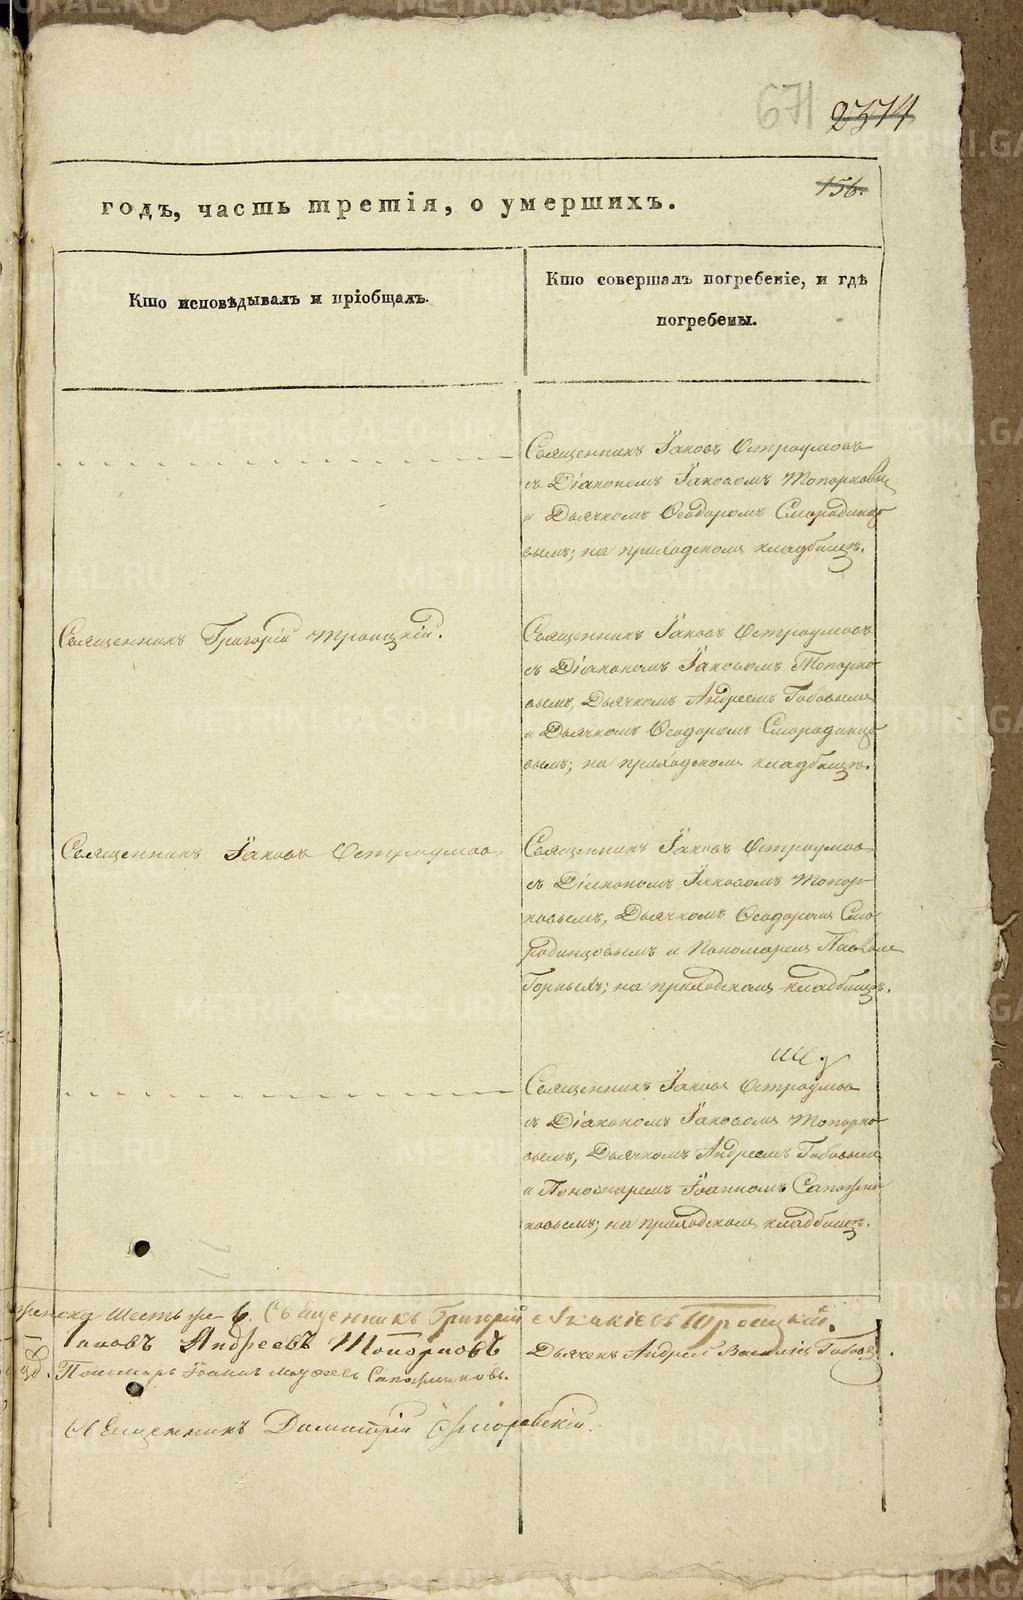 671 2374
156.
годъ, часть третія, о умершихъ.
Кто исповѣдывалъ и пріобщалъ.
Кто совершалъ погребеніе, и гдѣ
погребены.
Священникъ Іаковъ Остроумовъ
съ Діакономъ Іаковомъ Топорковым
и Дьячкомъ Ѳеодоромъ Смородинцо
вымъ; на приходскомъ кладбищѣ.
Священникъ Григорій Троицкій.
Священникъ Іаковъ Остроумовъ
съ Діакономъ Іаковомъ Топорко
вымъ, Дьячкомъ Андреемъ Гобовымъ
и Дьячкомъ Ѳеодоромъ Смородинцо
вымъ; на приходскомъ кладбищѣ.
Священникъ Іаковъ Остроумовъ
Священникъ Іаковъ Остроумовъ
съ Діакономъ Іаковомъ Топор
ковымъ, Дьячкомъ Ѳеодоромъ Смо
родинцовымъ и Пономаремъ Павломъ
Горныхъ; на приходскомъ кладбищѣ.
Священникъ Іаковъ Остроумовъ
съ Діакономъ Іаковомъ Топорко
вымъ, Дьячкомъ Андреемъ Гобовымъ
и Пономаремъ Іоанномъ Сапожни
ковымъ; на приходскомъ кладбищѣ.
женска шесть же 6. Священникъ Григорій Акакіевъ Троицкій.
Іаковъ Андреевъ Топорковъ
Дьячекъ Андрей Васильевъ Гобовъ.
Пономарь Іоаннъ Сапожниковъ.
Священникъ Димитрій